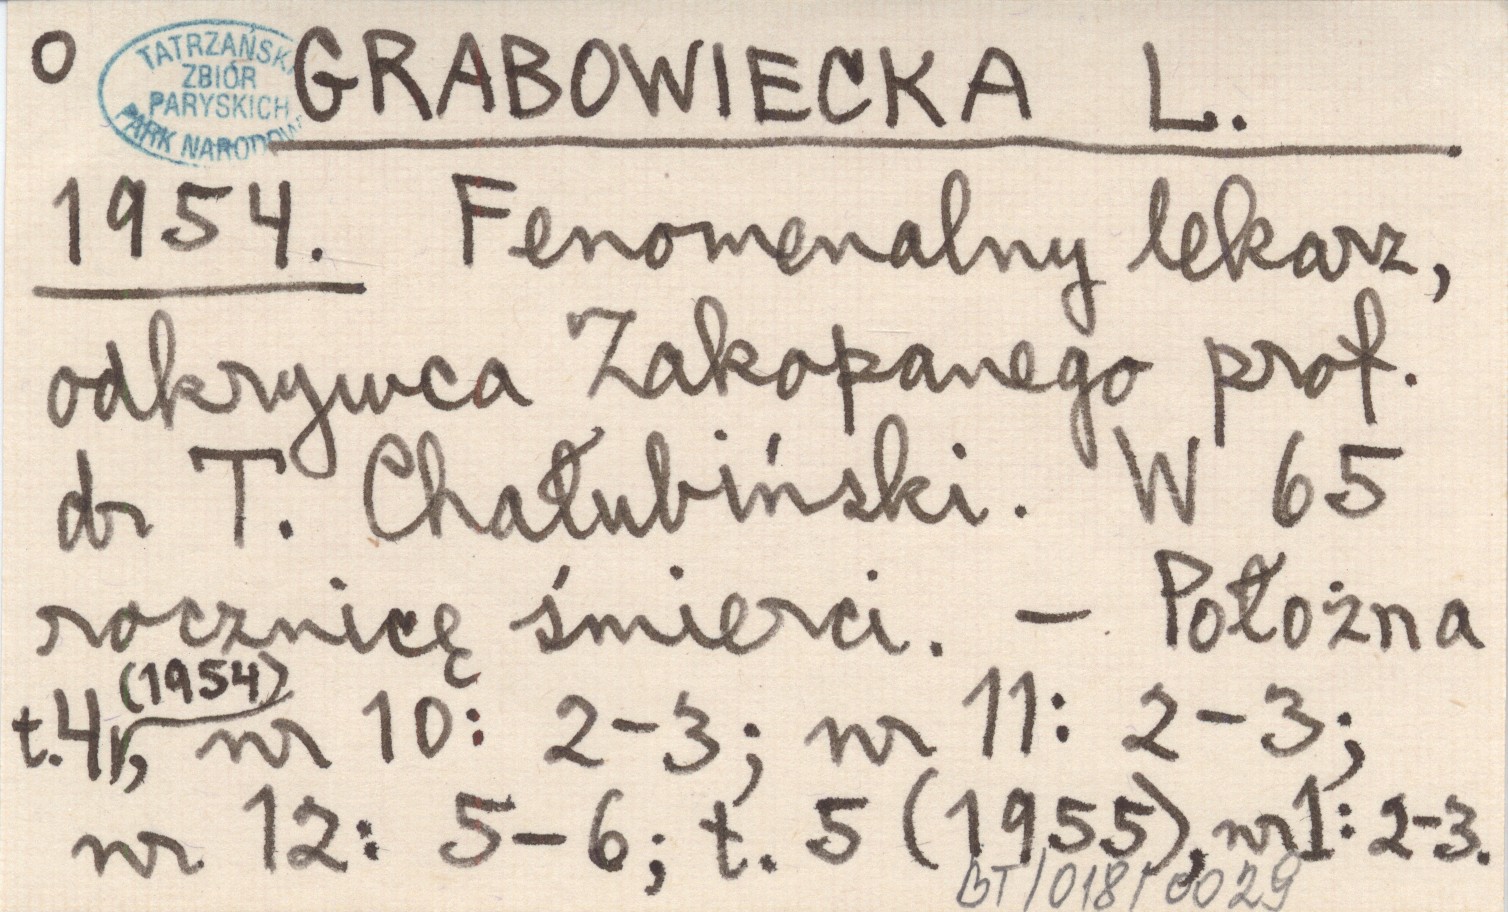 O GRABOWIECKA L.
TATRZAŃSKI
ZBIÓR
PARYSKICH
PARK NARODOW
1954. Fenomenalny lekarz,
odkrywca Zakopanego prof.
dr T. Chałubiński. W 65
rocznicę śmierci. – Położna
t.4, (1954) nr 10: 2-3; nr 11: 2-3;
nr 12: 5-6; t. 5 (1955), nr 1: 2-3.
BT/018/0029